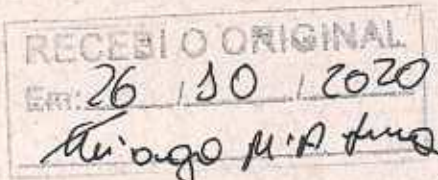 RECEBI O ORIGINAL
Em: 26 / 10 / 2020
Thiago M. A.